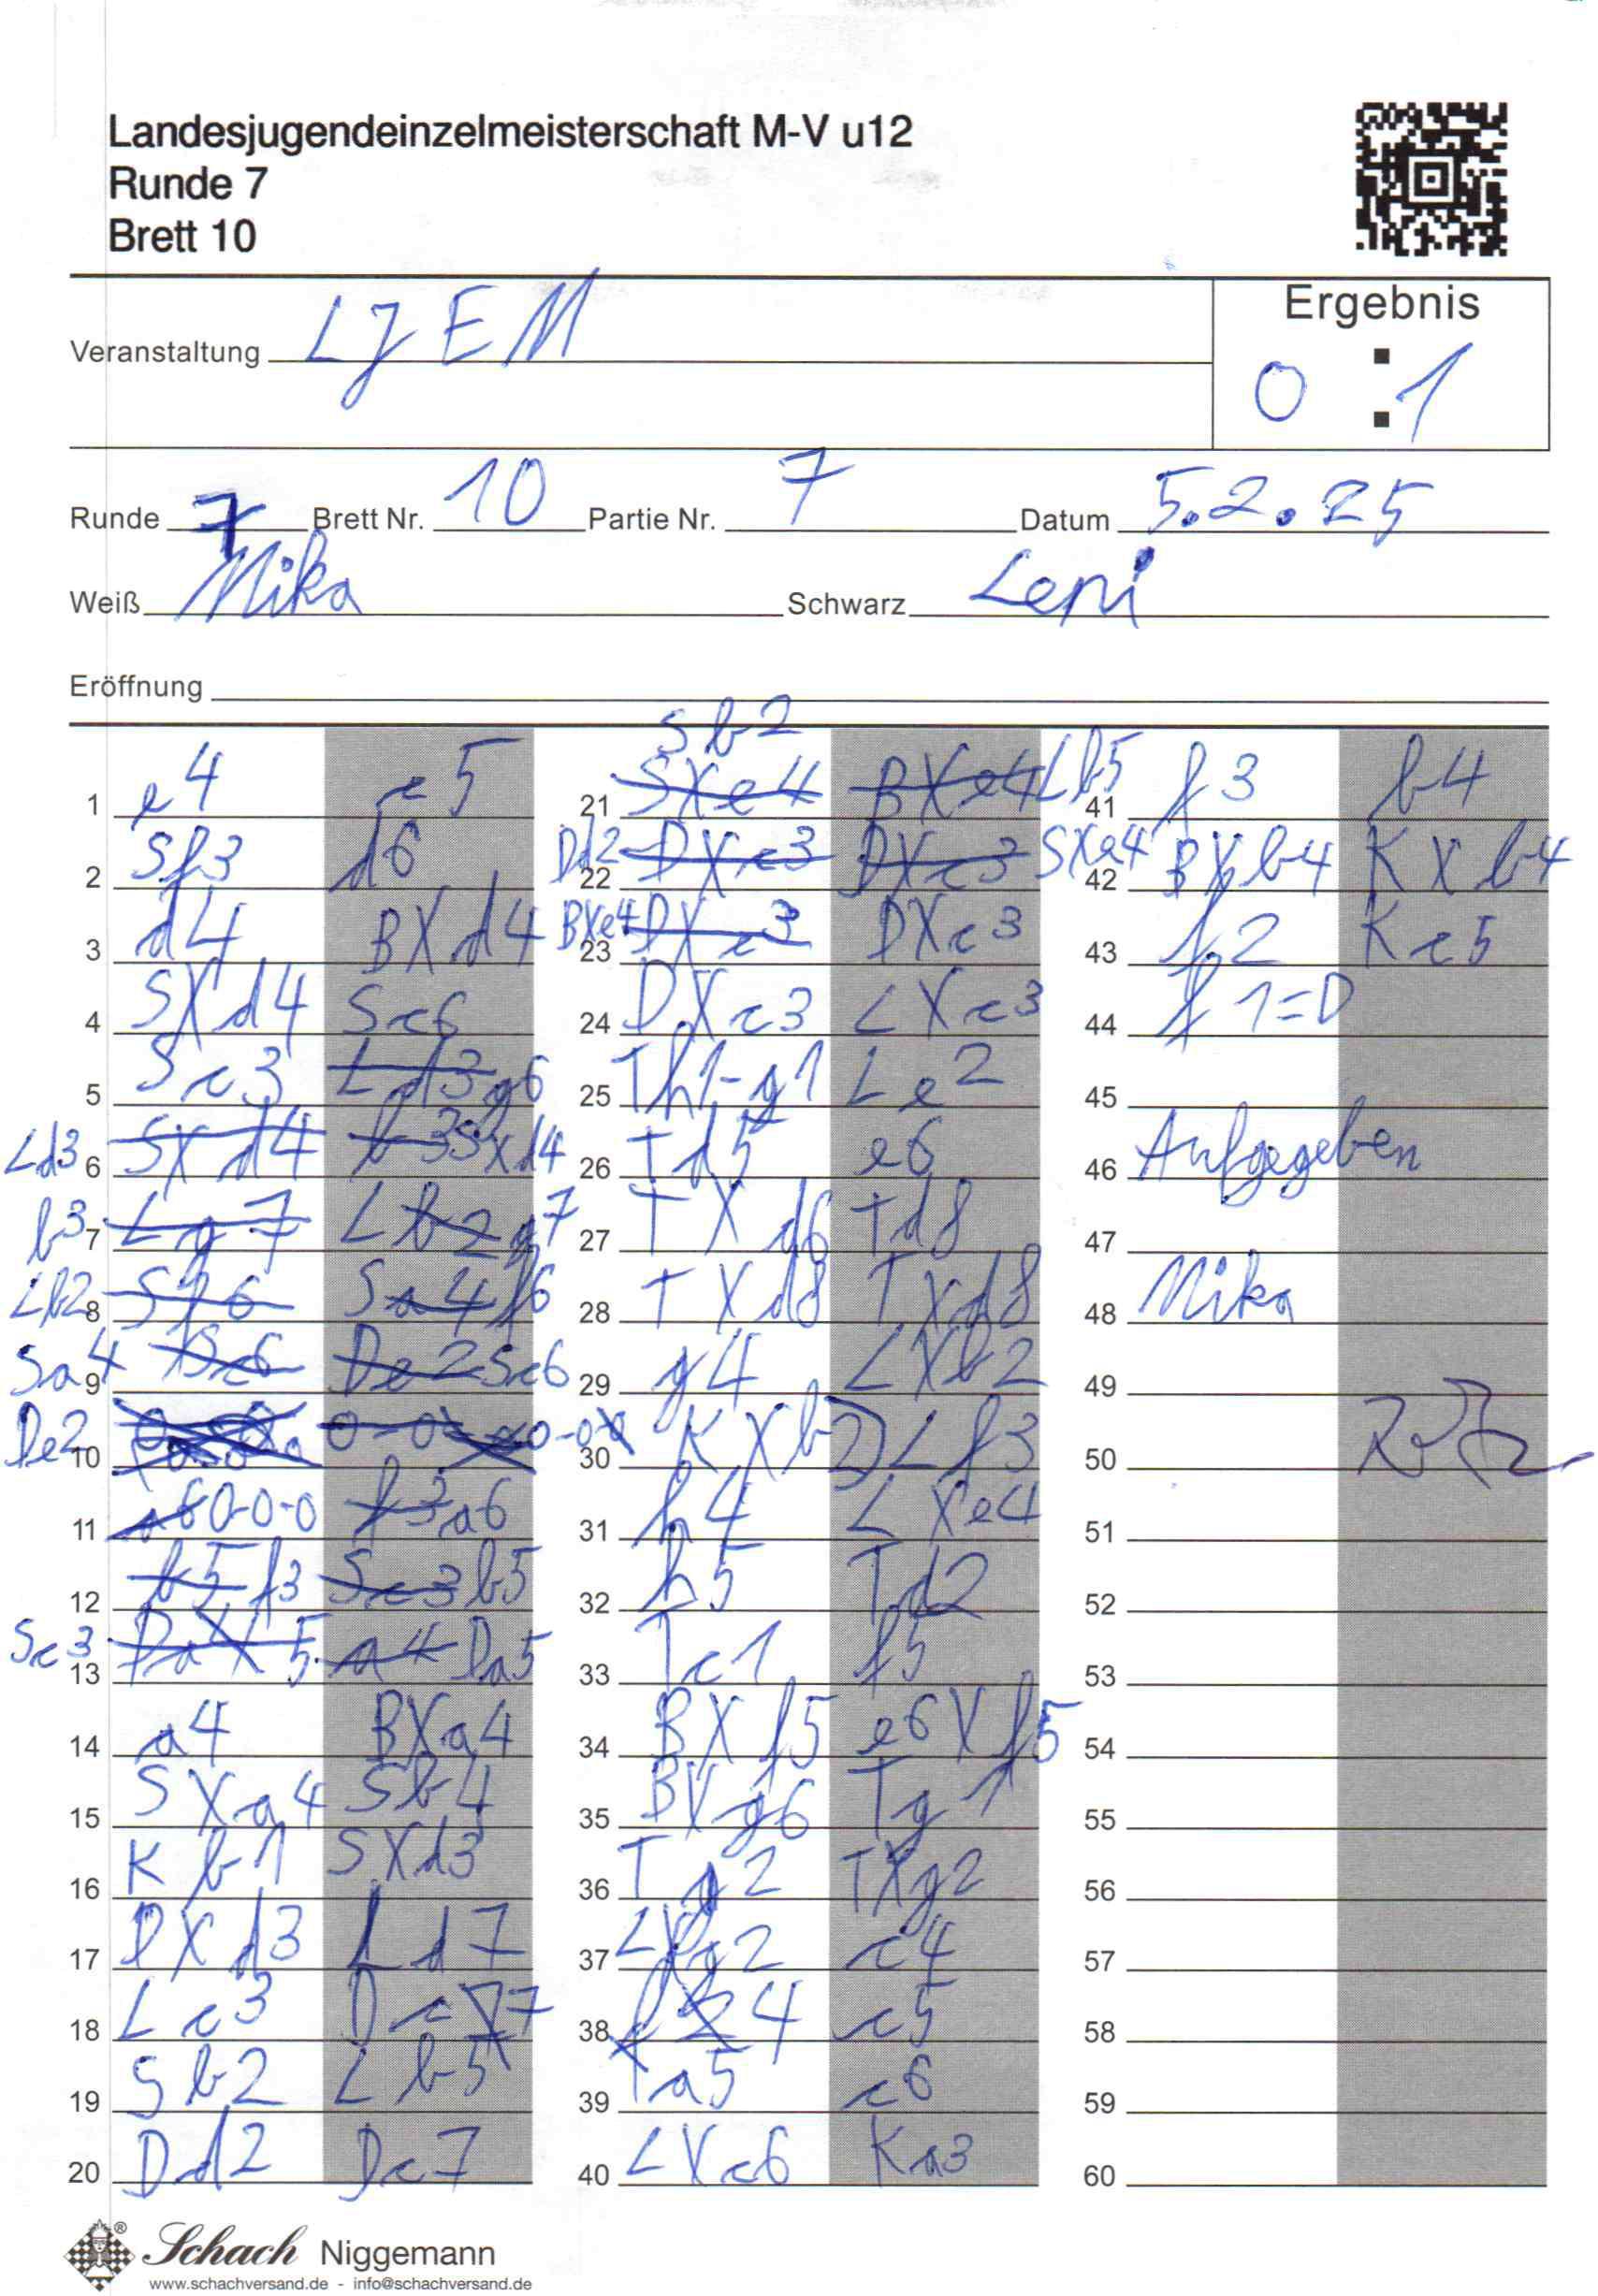 Landesjugendeinzelmeisterschaft M-V u12
Runde 7
Brett 10
Ergebnis
Veranstaltung LJEM
0 : 1
Runde 7 Brett Nr. 10 Partie Nr. 7 Datum 5.2.25
Weiß Mika Schwarz Leni
Eröffnung
1 e4 e5
2 Sf3 d6
3 d4 BXd4
4 SXd4 Sc6
5 Sc3 g6
6 Ld3 SXd4
7 b3 Lg7
8 Lb2 Sf6
9 Sa4 Sc6
10 De2 0-0
11 0-0-0 a6
12 f3 b5
13 Sc3 Da5
14 a4 BXa4
15 SXa4 Sb4
16 Kb1 SXd3
17 DXd3 Ld7
18 Lc3 Dc7
19 Sb2 Lb5
20 Dd2 Dc7
21 Sb2 Lb5
22 Dd2 SXe4
23 BXe4 DXc3
24 DXc3 LXc3
25 Th1-g1 Le2
26 Td5 e6
27 TXd6 Td8
28 TXd8 TXd8
29 g4 LXb2
30 KXb2 Lf3
31 h4 LXe4
32 h5 Td2
33 Tc1 f5
34 BXf5 e6Xf5
35 BXg6 Tg1
36 Tg2 TXg2
37 LXg2 c4
38 4 c5
39 Ta5 c6
40 LXc6 Ka3
41 f3 b4
42 BXb4 KXb4
43 f2 Kc5
44 f1=D
45
46 Aufgegeben
47
48 Mika
49
50
51
52
53
54
55
56
57
58
59
60
Schach Niggemann
www.schachversand.de - info@schachversand.de